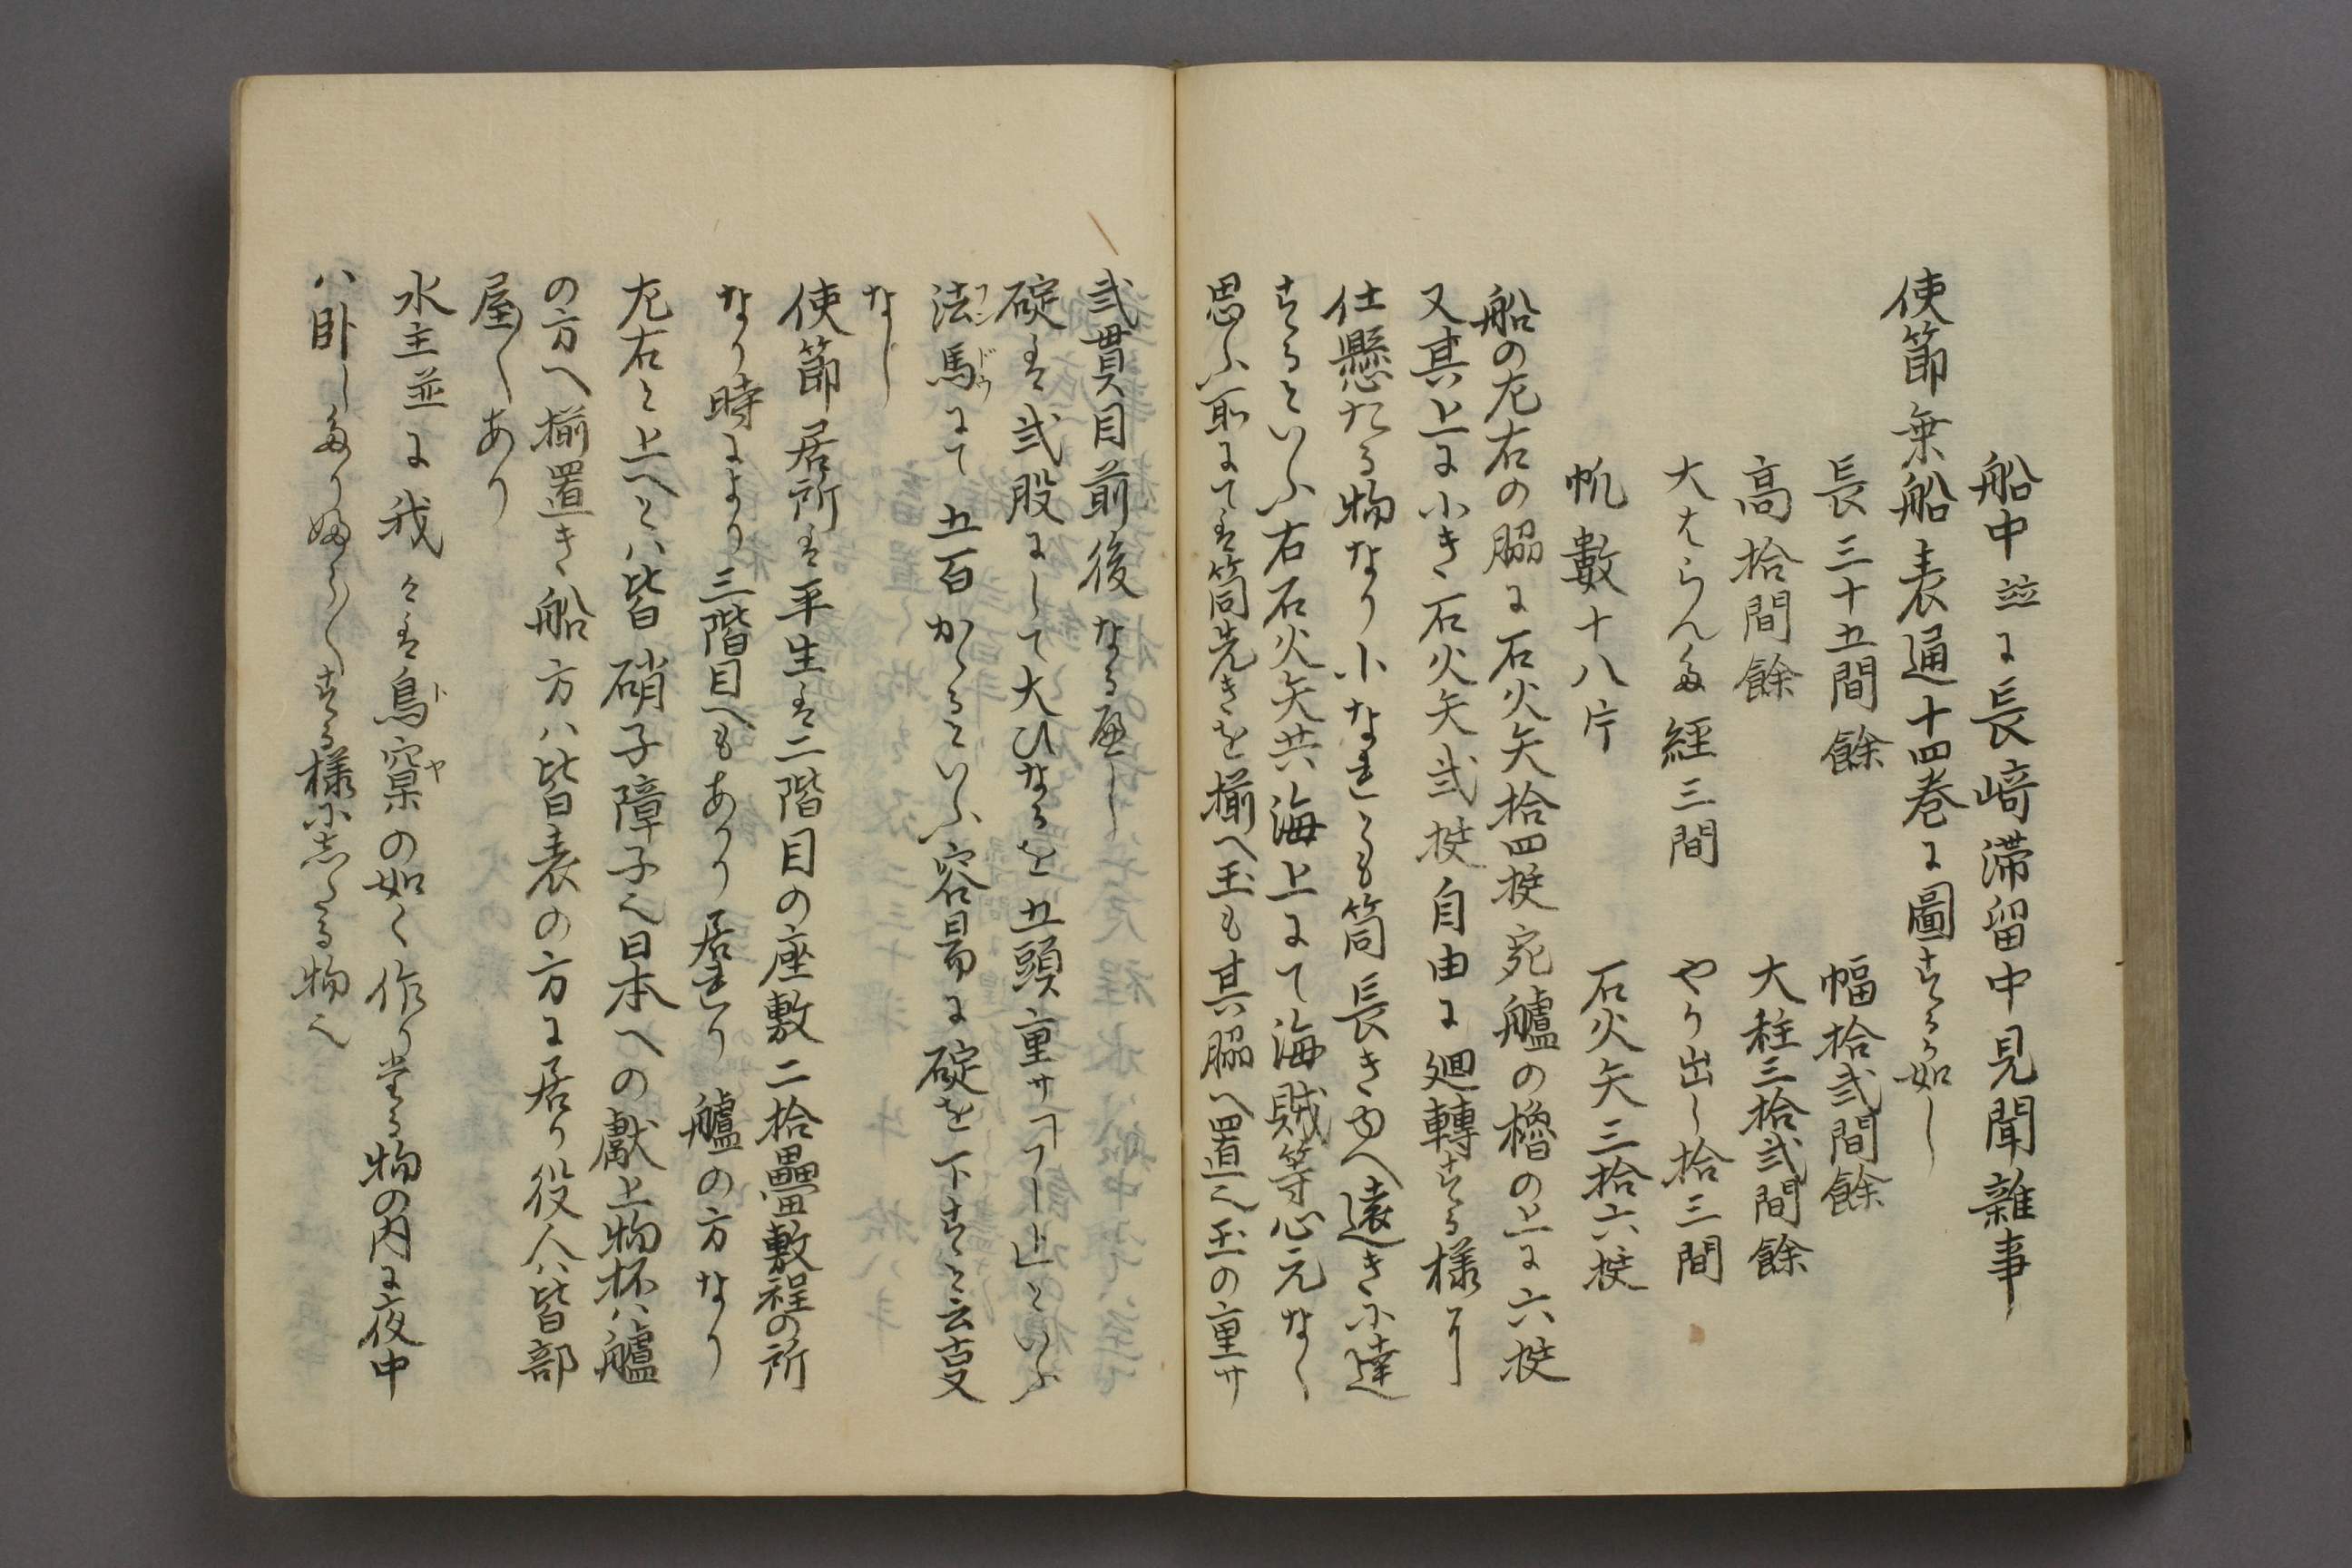 船中並に長﨑滞留中見聞雑事
使節乗船表通十四巻に圖するか如し
長三十五間餘　幅拾弐間餘
高拾間餘　大柱三拾弐間餘
大はらんた經三間　やり出し拾三間
帆數十八片　石火矢三拾六挺
船の左右の脇に石火矢拾四挺宛艫の櫓の上に六挺
又其上に小き石火矢弐挺自由に廻轉する様に
仕懸たる物なり小なれとも筒長きゆへ遠きに達
するといふ右石火矢共海上にて海賊等心元なく
思ふ所にては筒先きを揃へ玉も其脇へ置之玉の重サ
弐貫目前後なるへし
碇は弐股にして大ひなるを五頭重サ一フートといふ
法馬にて五百かゝるといふ容易に碇を下すと云事
なし
使節居所は平生は二階目の座敷二拾疊敷程の所
なり時により三階目へもあかり居れり艫の方なり
左右と上へとハ皆硝子障子也日本への獻上物抔ハ艫
の方へ揃置き船方ハ皆表の方に居り役人ハ皆部
屋〱あり
水主並に我々は鳥窠の如く作りたる物の内に夜中
ハ卧したりゆら〱する様にしたる物也
フンドウ
トヤ